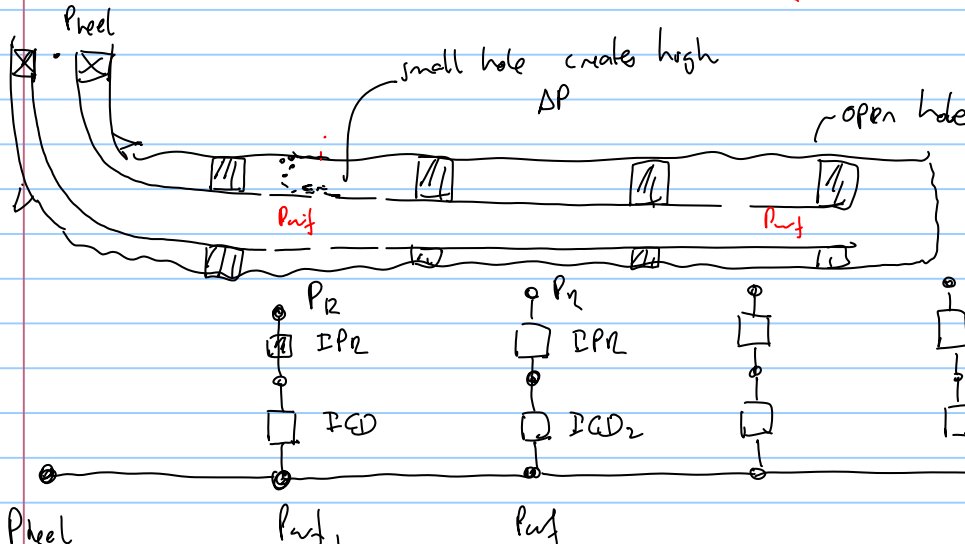 Pheel
small hole creates high
ΔP
open hole
Pwf
Pwf
PR
IPR
ICD
PR
IPR
ICD2
Pheel
Pwf1
Pwf